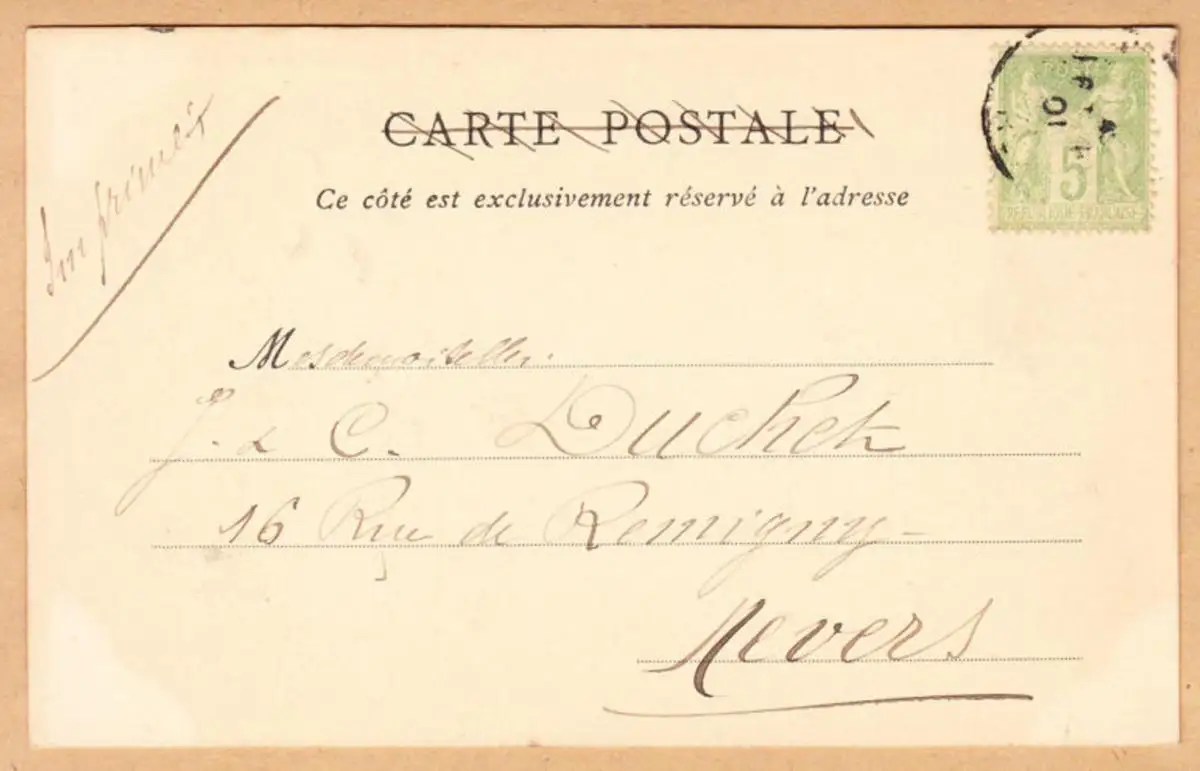 Imprimés
CARTE POSTALE
Ce côté est exclusivement réservé à l'adresse
5
REPUBLIQUE FRANÇAISE
Mesdemoiselles
J. & C. Duchet
16 Rue de Remigny
Nevers